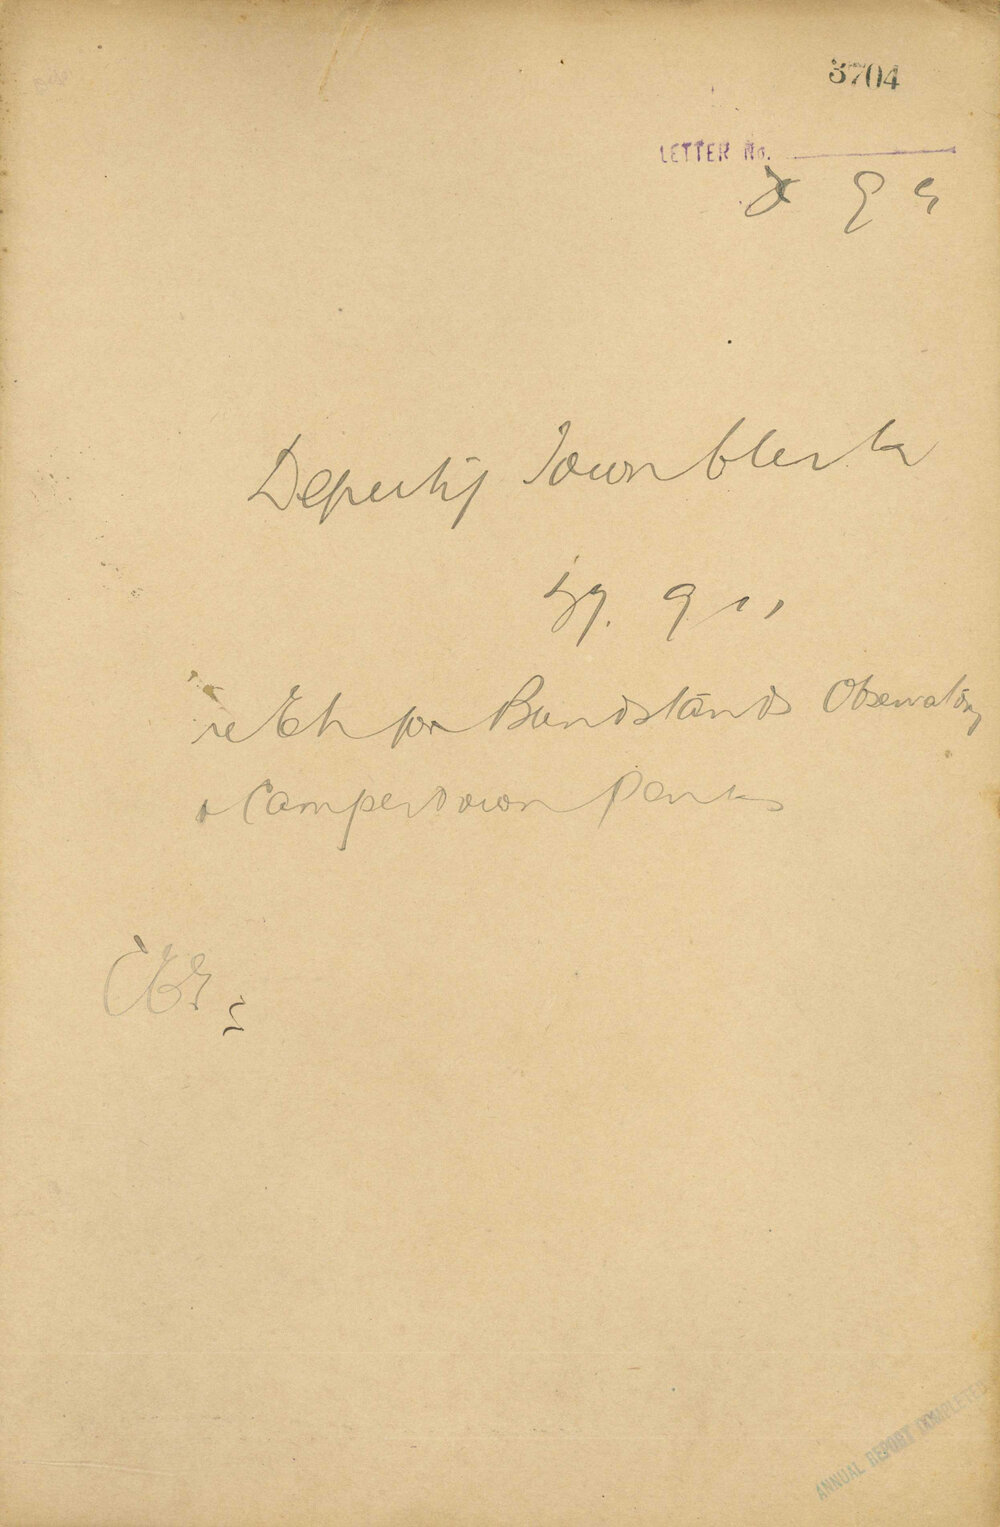 3704
LETTER No.
Deputy Town Clerk
9 11
re for Bandstands Observatory
& Camperdown Parks
ANNUAL REPORT COMPLETED